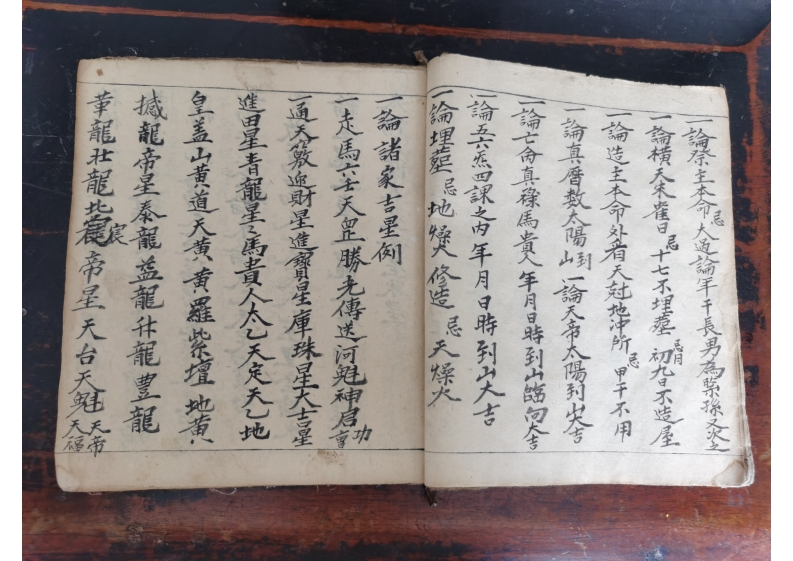 一論祭主本命忌大過論年干長男為孫又次之
一論橫天朱雀日忌十七不埋𦵏初九日忌月不造屋
一論造主本命外看天尅地冲所忌甲干不用
一論真曆數太陽到山一論天帝太陽到山大吉
一論亡命真祿馬貴人年月日時到山臨向大吉
一論五六炁四課之內年月日時到山大吉
一論埋𦵏忌地燥火修造忌天燥火
一論諸家吉星例
一走馬六壬天罡勝光傳送河魁神后功曹
一通天竅迎財星進寶星庫珠星大吉星
進田星青龍星馬貴人太乙天定天乙地
皇盖山黃道天黃黃羅紫壇地黃
撼龍帝星泰龍益龍升龍豊龍
華龍壮龍北宸帝星天台天魁天帝天福